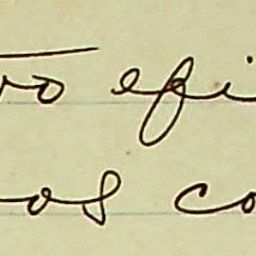 vo efi
os co